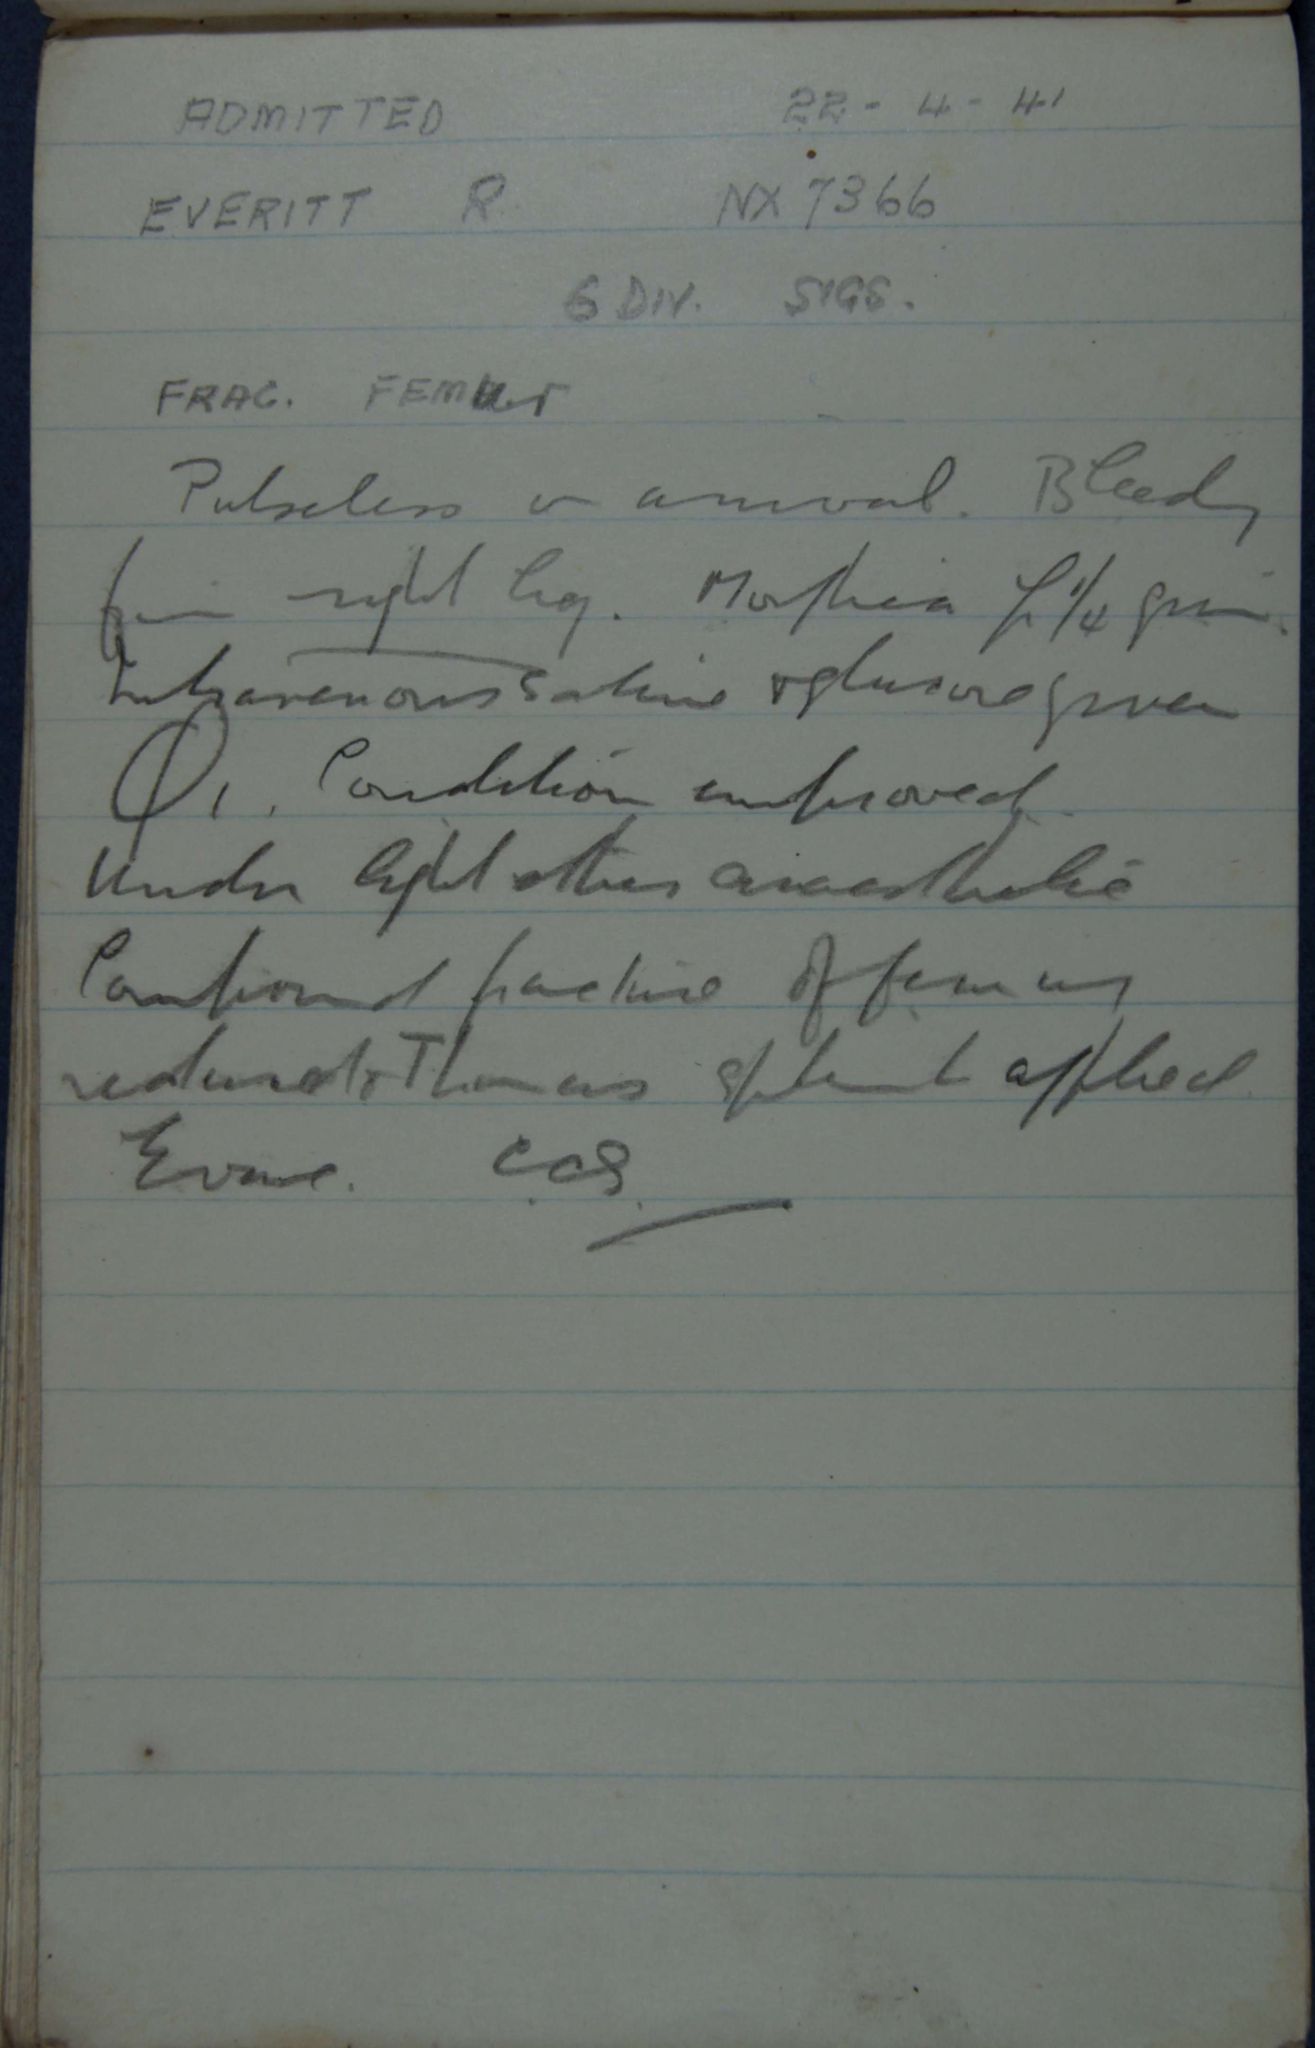 ADMITTED 22-4-41
EVERITT R NX 7366
6 DIV. SIGS.
FRAC. FEMur
Pulseless on arrival. Bleeding
from right leg. Morphia gr 1/4 given.
Intravenous saline & glucose given
Condition improved
Under light ether anaesthetic
Compound fracture of femur
reduced & Thomas splint applied
Evac. CCS